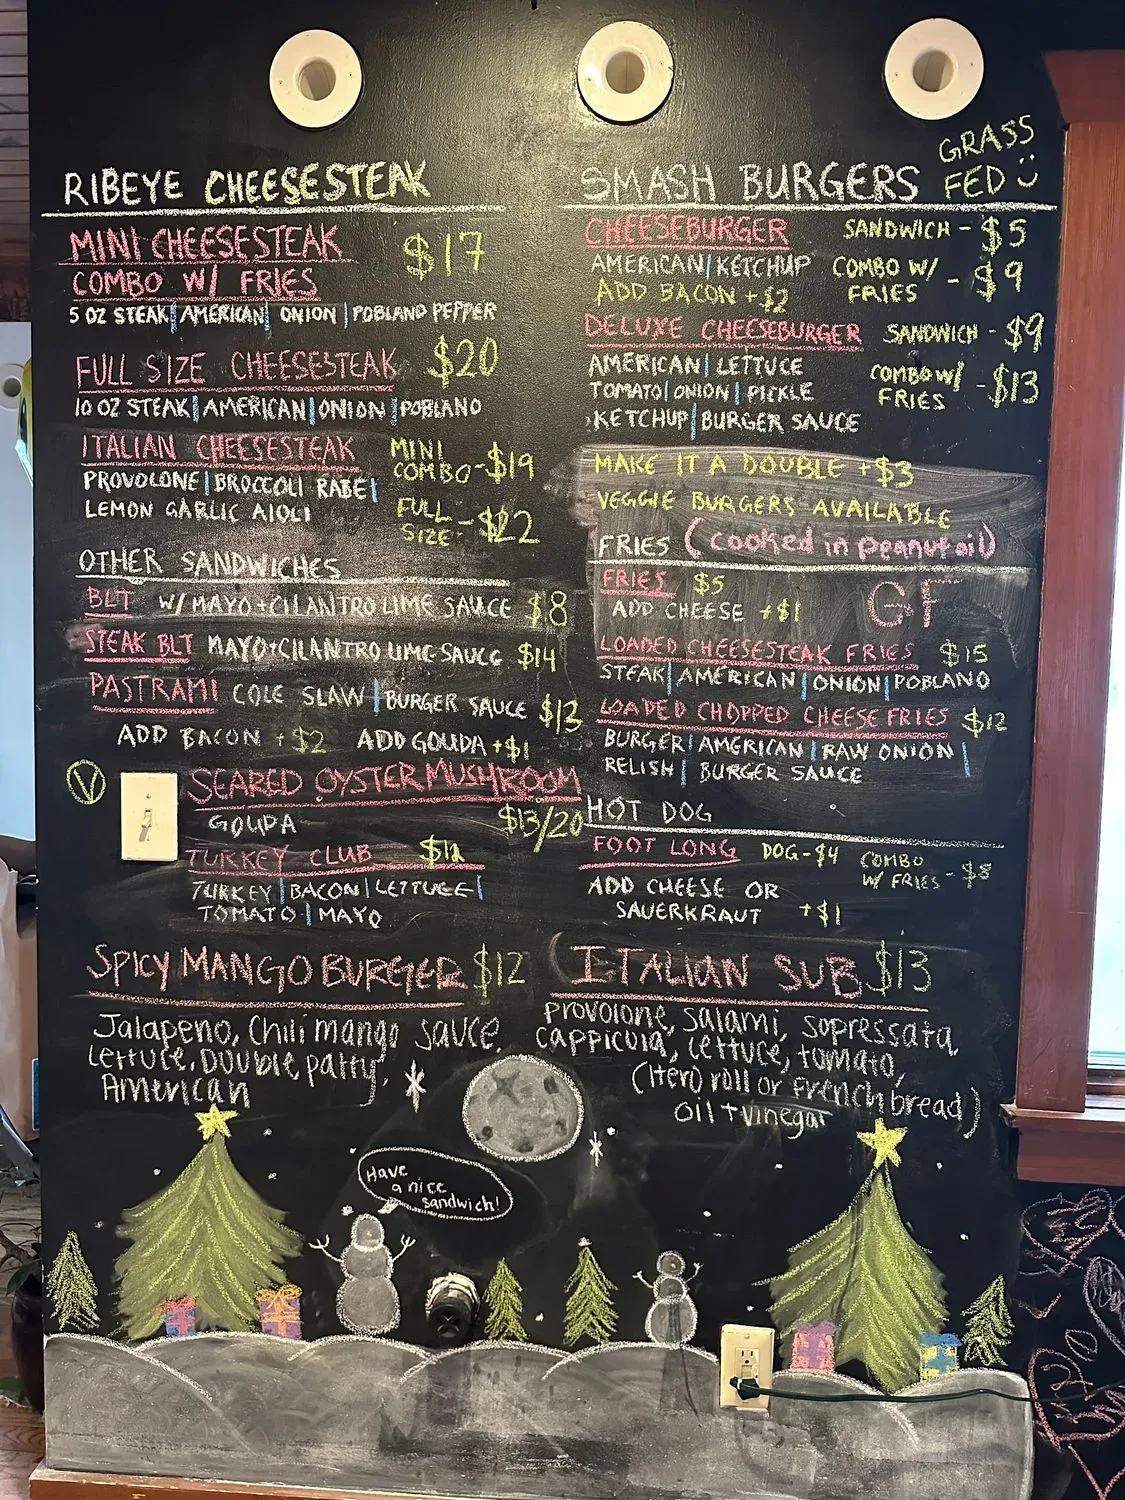 RIBEYE CHEESESTEAK
MINI CHEESESTEAK $17
COMBO W/ FRIES
5 OZ STEAK | AMERICAN | ONION | POBLANO PEPPER
FULL SIZE CHEESESTEAK $20
10 OZ STEAK | AMERICAN | ONION | POBLANO
ITALIAN CHEESESTEAK MINI COMBO - $19
PROVOLONE | BROCCOLI RABE |
LEMON GARLIC AIOLI FULL SIZE - $22
OTHER SANDWICHES
BLT W/ MAYO + CILANTRO LIME SAUCE $8
STEAK BLT MAYO + CILANTRO LIME SAUCE $14
PASTRAMI COLE SLAW | BURGER SAUCE $13
ADD BACON +$2 ADD GOUDA +$1
V SEARED OYSTER MUSHROOM
GOUDA $13/20
TURKEY CLUB $12
TURKEY | BACON | LETTUCE |
TOMATO | MAYO
SPICY MANGO BURGER $12
Jalapeno, Chili mango sauce,
Lettuce, Double patty,
American
SMASH BURGERS GRASS FED
CHEESEBURGER SANDWICH - $5
AMERICAN | KETCHUP COMBO W/ FRIES - $9
ADD BACON +$2
DELUXE CHEESEBURGER SANDWICH - $9
AMERICAN | LETTUCE COMBO W/ FRIES - $13
TOMATO | ONION | PICKLE
KETCHUP | BURGER SAUCE
MAKE IT A DOUBLE +$3
VEGGIE BURGERS AVAILABLE
FRIES (cooked in peanut oil)
FRIES $5 GF
ADD CHEESE +$1
LOADED CHEESESTEAK FRIES $15
STEAK | AMERICAN | ONION | POBLANO
LOADED CHOPPED CHEESE FRIES $12
BURGER | AMERICAN | RAW ONION |
RELISH | BURGER SAUCE
HOT DOG
FOOT LONG DOG - $4 COMBO W/ FRIES - $8
ADD CHEESE OR
SAUERKRAUT +$1
ITALIAN SUB $13
provolone, salami, sopressata,
cappicola, lettuce, tomato,
(Hero roll or french bread)
oil + vinegar
Have
a nice
sandwich!